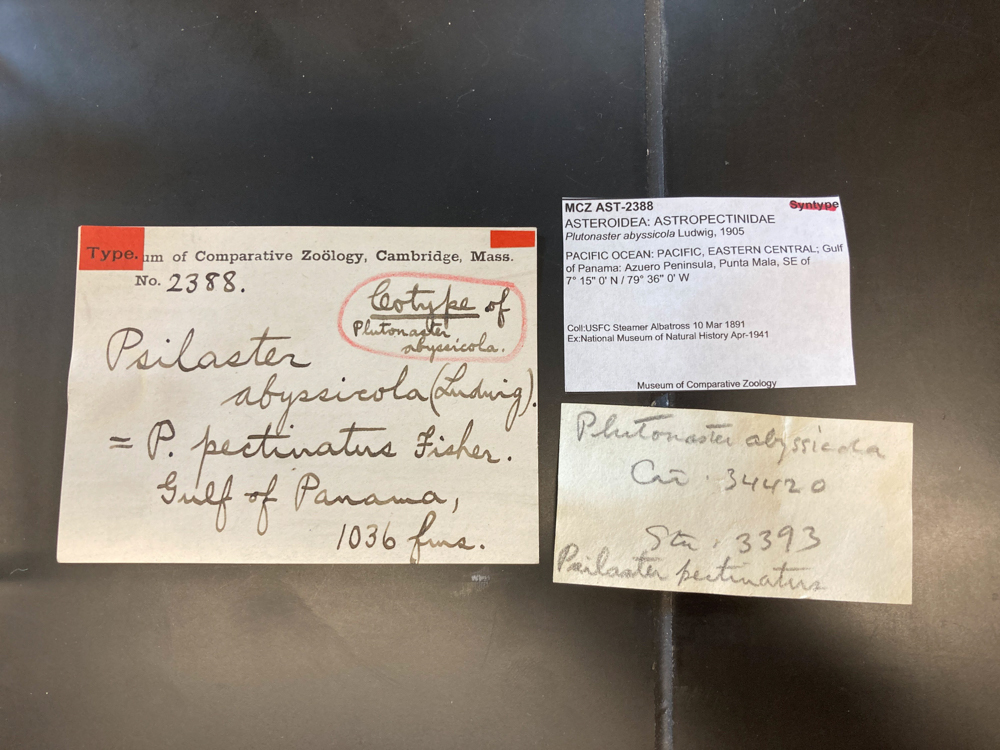 Type.
um of Comparative Zoölogy, Cambridge, Mass.
No. 2388.
Cotype of
Plutonaster
abyssicola.
Psilaster
abyssicola (Ludwig).
= P. pectinatus Fisher.
Gulf of Panama,
1036 fms.
MCZ AST-2388
Syntype
ASTEROIDEA: ASTROPECTINIDAE
Plutonaster abyssicola Ludwig, 1905
PACIFIC OCEAN: PACIFIC, EASTERN CENTRAL; Gulf
of Panama: Azuero Peninsula, Punta Mala, SE of
7° 15" 0' N / 79° 36" 0' W
Coll:USFC Steamer Albatross 10 Mar 1891
Ex:National Museum of Natural History Apr-1941
Museum of Comparative Zoology
Plutonaster abyssicola
Cat. 34420
Sta. 3393
Psilaster pectinatus